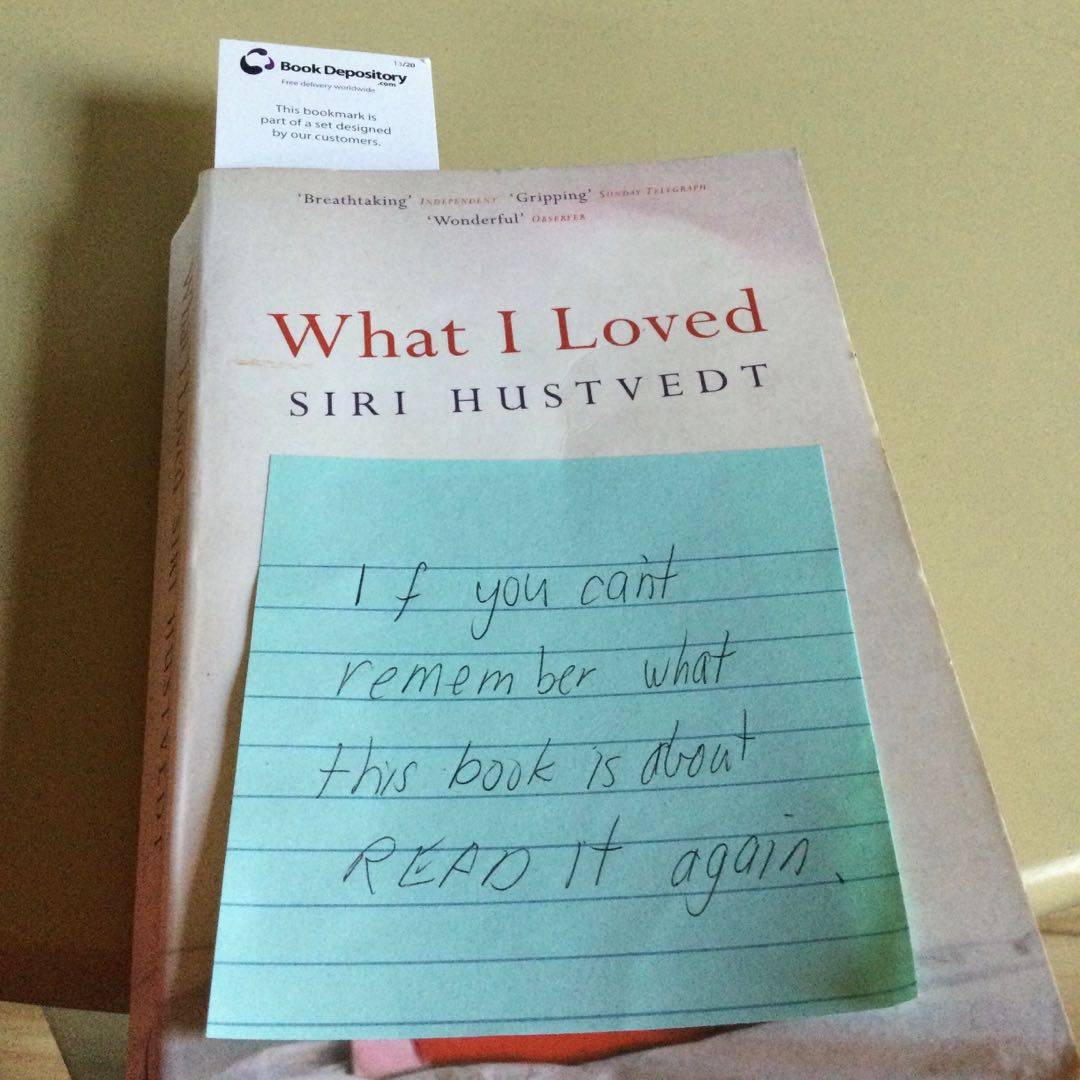 13/20
Book Depository
.com
Free delivery worldwide
This bookmark is
part of a set designed
by our customers.
'Breathtaking' INDEPENDENT 'Gripping' SUNDAY TELEGRAPH
'Wonderful' OBSERVER
What I Loved
SIRI HUSTVEDT
If you can't
remember what
this book is about
READ It again.